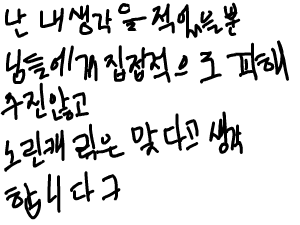 난 내생각을적있을뿐
님들에게집접적으로 피해
주진않고
노린캐릭은 맞다고 생각
합니다구